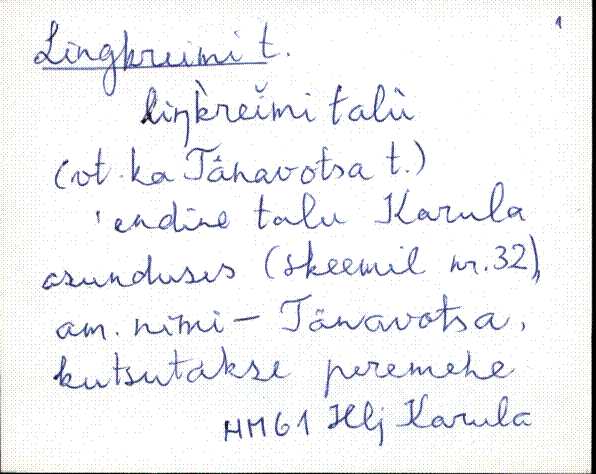 1
Lingkreimi t.
liŋ̀kreĭmi talù
(vt. ka Tänavotsa t.)
'endine talu Karula
asunduses (skeemil nr. 32),
am. nimi – Tänavotsa,
kutsutakse peremehe
HM61 Hlj Karula